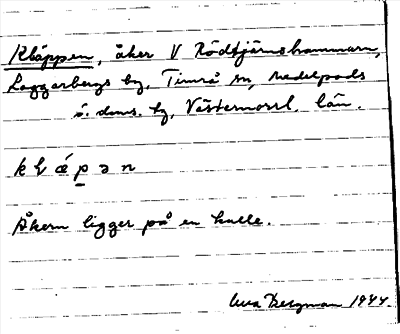 Kläppen, åker V Rödtjärnshammarn,
Laggarbergs by, Timrå sn, Medelpads
ö. doms. by, Västernorrl. län.
k l ǽ p ə n
Åkern ligger på en kulle.
Bergman 1944.